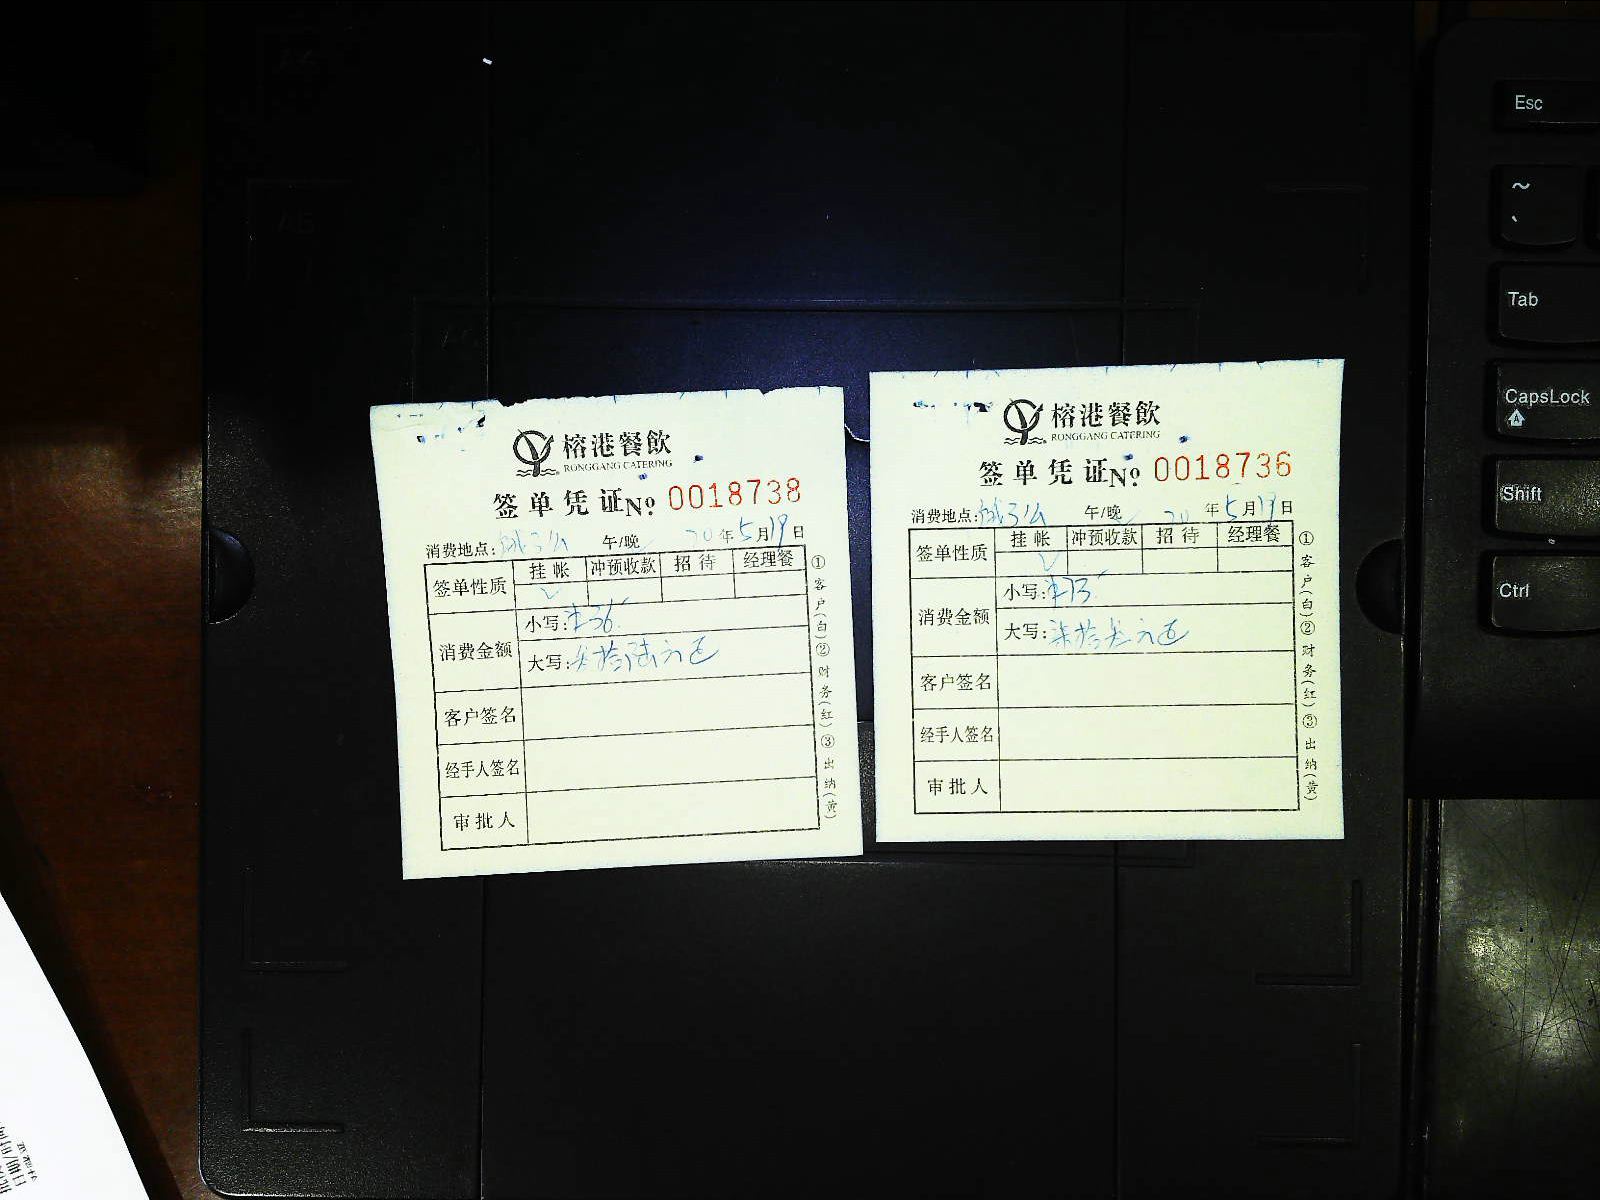 榕港餐飲
RONGGANG CATERING
签单凭证 № 0018738
消费地点: 午/晚 20年5月19日
签单性质 挂帐 冲预收款 招待 经理餐
✓
消费金额 小写:¥36
大写:叁拾陆元正
客户签名
经手人签名
审批人
①客户(白)②财务(红)③出纳(黄)
榕港餐飲
RONGGANG CATERING
签单凭证 № 0018736
消费地点: 午/晚 20年5月19日
签单性质 挂帐 冲预收款 招待 经理餐
✓
消费金额 小写:¥73
大写:柒拾叁元正
客户签名
经手人签名
审批人
①客户(白)②财务(红)③出纳(黄)
Esc
~
`
Tab
CapsLock
A
Shift
Ctrl
A5
日期/时间